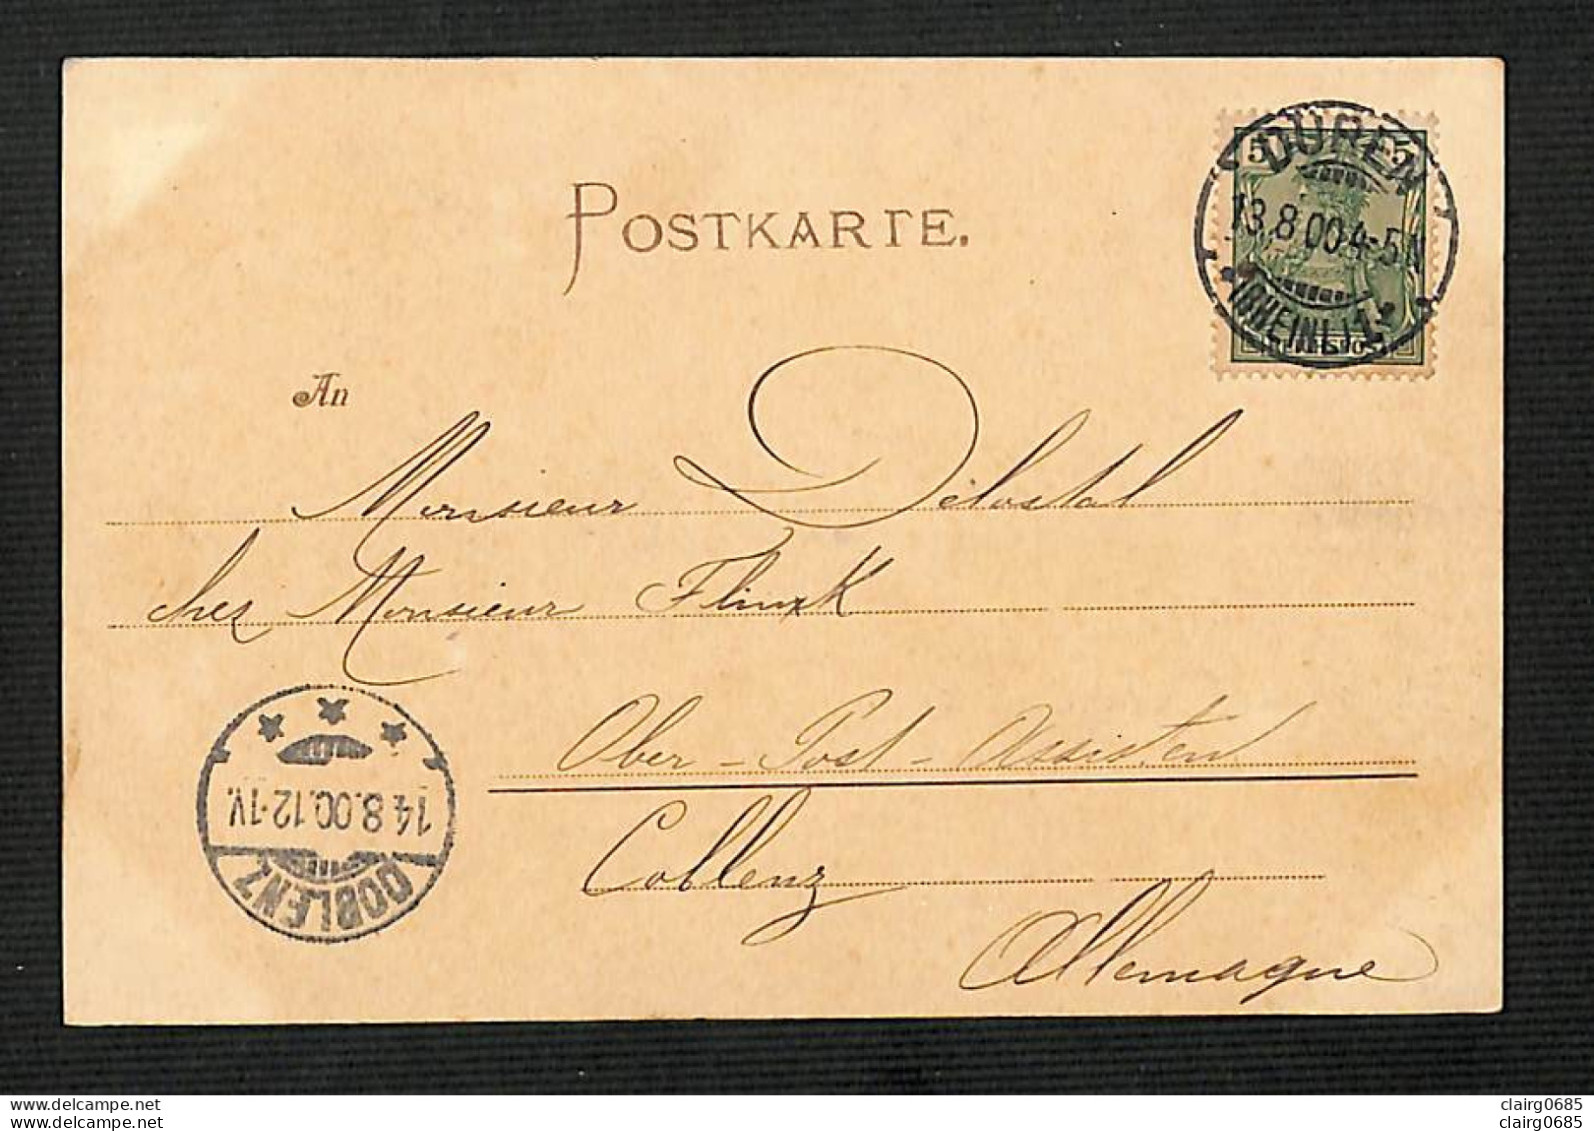 POSTKARTE.
5 5
DÜREN
13.8.00 4-5N
*(RHEINL.) 1.*
REICHSPOST
An
Monsieur Délostal
chez Monsieur Flinxk
Ober-Post-Assistent
Coblenz
Allemagne
14.8.00.12-1V.
COBLENZ
delcampe.net
delcampe.net
clairg0685
clairg0685